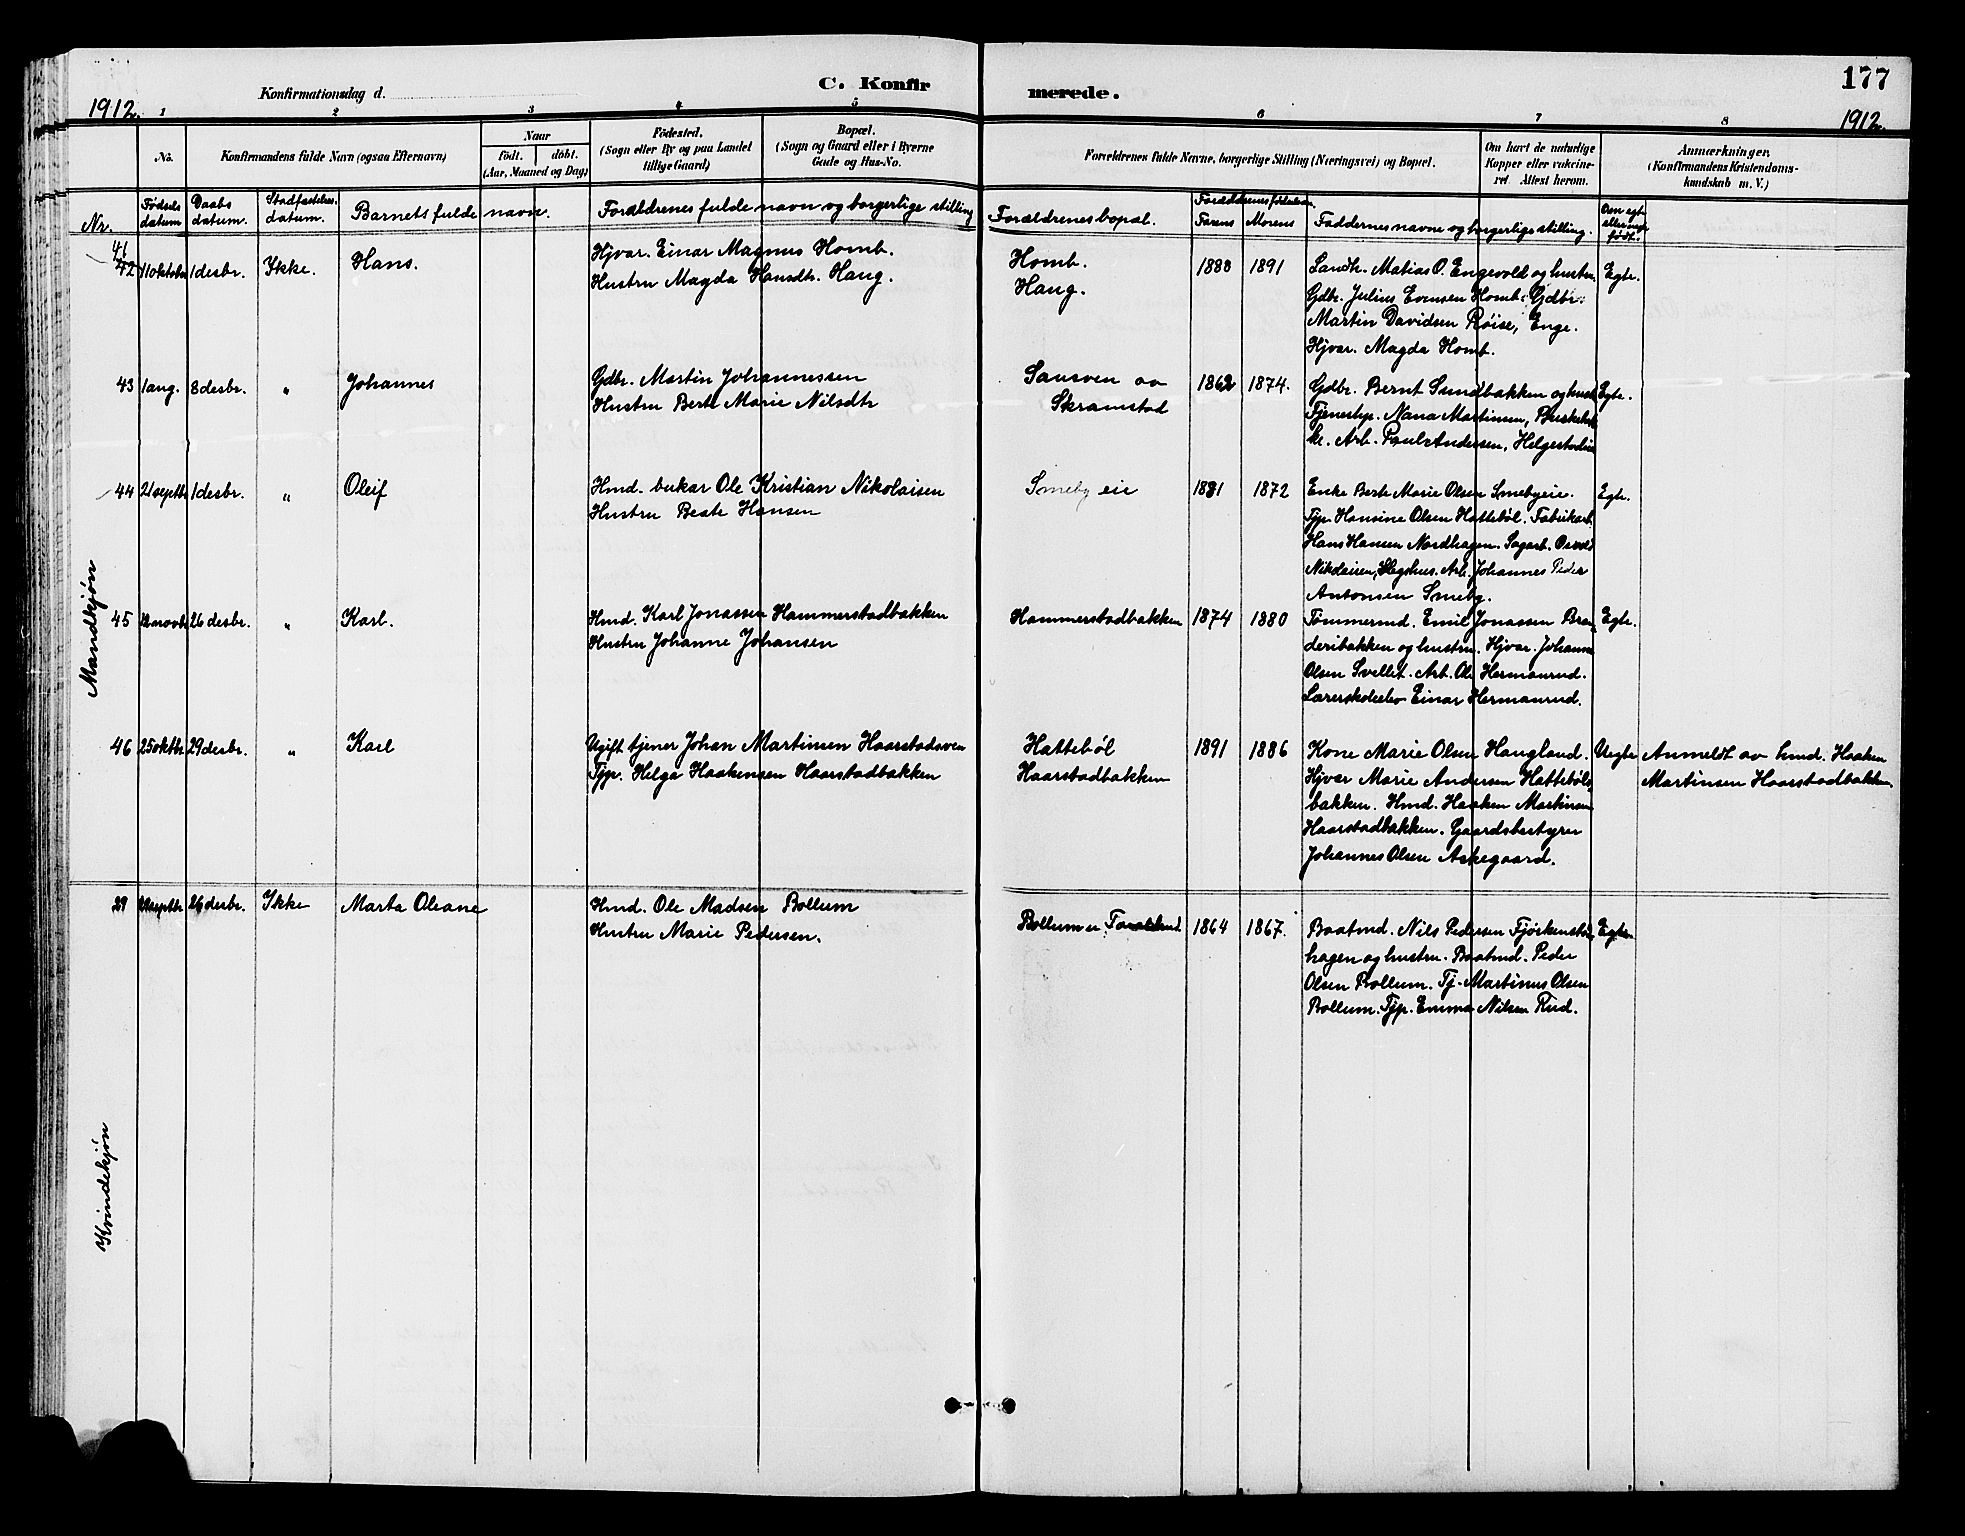 1912.
Konfirmationsdag d.
C. Konfirmerede.
177
1912.
1 2 3 4 5 6 7 8
No.
Konfirmandens fulde Navn (ogsaa Efternavn)
Naar
født. døbt.
(Aar, Maaned og Dag)
Fødested.
(Sogn eller By og paa Landet
tillige Gaard)
Bopæl.
(Sogn og Gaard eller i Byerne
Gade og Hus-No.
Forældrenes fulde Navne, borgerlige Stilling (Næringsvei) og Bopæl.
Om havt de naturlige
Kopper eller vakcine-
ret. Attest herom.
Anmærkninger,
(Konfirmandens Kristendoms-
kundskab m. V.)
Nr.
Fødsels
datum
Daabs
datum.
Stadfæstelses
datum.
Barnets fulde navn.
Forældrenes fulde navn og borgerlige stilling
Forældrenes bopæl.
Farens Morens
Faddernes navne og borgerlige stilling.
Om egte
eller uegte
født.
Mandkjøn
41
42 11 oktobr 1 desbr. Ikke. Hans.
Hjvar. Einar Magnus Homb.
Hustru Magda Hansdtr. Haug.
Homb.
Haug.
1888 1891
Matias O. Engevold og hustru
Gdbr. Julius Evensen Homb. Gdbr.
Martin Davidsen Røise, Enge.
Hjvar. Magda Homb.
Egte.
43 1 aug. 8 desbr. " Johannes
Gdbr. Martin Johannessen
Hustru Berte Marie Nilsdtr
Sansven av
Skramstad
1862 1874.
Gdbr. Bernt Sundbakken og hustru
Tjenestep. Nana Martinsen,
Arb. Paul Andersen,
Egte.
44 21 septbr 1 desbr. " Oleif
Hmd. Ole Kristian Nikolaisen
Hustru Beate Hansen
Smeby eie
1881 1872
Enke Berte Marie Olsen Smebyeie.
Tjp. Hansine Olsen Hattebøl. Fabrikarb.
Hans Hansen Nordhagen. Sagarb.
Nikolaisen, Arb. Johannes Peder
Antonsen Smeby.
Egte.
45 26 desbr. " Karl.
Hmd. Karl Jonassen Hammerstadbakken
Hustru Johanne Johansen
Hammerstadbakken
1874 1880
Tømmermd. Emil Jonassen Bran-
deribakken og hustru. Hjvar. Johanne
Olsen Svellet. Arb. Ole Hermanrud.
Lærerskoleelev Einar Hermanrud.
Egte.
46 25 oktbr 29 desbr. " Karl
Ugift tjener Johan Martinsen Haarstadsven
Tjp. Helga Haakensen Haarstadbakken
Hattebøl
Haarstadbakken
1891 1886
Kone Marie Olsen Haugland.
Hjvar Marie Andersen Hattebøl-
bakken. Hmd. Haaken Martinsen
Haarstadbakken. Gaardsbestyrer
Johannes Olsen Askegaard.
Uegte
Anmeldt av hmd. Haaken
Martinsen Haarstadbakken
Kvindekjøn
29 26 desbr. Ikke Marta Oleane
Hmd. Ole Madsen Bollum
Hustru Marie Pedersen.
Bollum
1864 1867.
Baatmd. Nils Pedersen
hagen og hustru. Baatmd. Peder
Olsen Bollum. Tj. Martinus Olsen
Bollum. Tjp. Emma Nilsen Rud.
Egte.